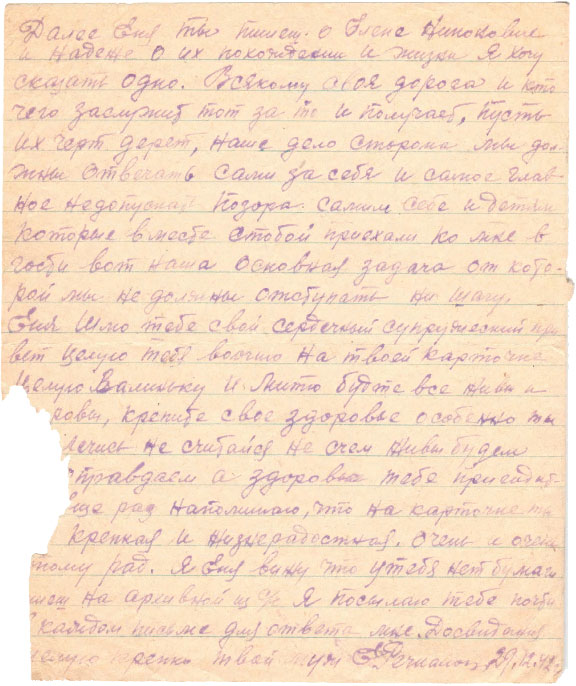 Далее Еня ты пишеш. о Елене
и Надеже о их похождении и жизни я хочу
сказать одно. Всякому своя дорога и кто
чего заслужит тот за то и получает, пусть
их черт дерет, наше дело сторона мы дол-
жны отвечать сами за себя и самое глав-
ное недопускать позора. самим себе и детям
которые вместе стобой приехали ко мне в
гости вот наша основная задача от кото-
рой мы не должны отступать ни шагу.
Еня шлю тебе свой сердечный супружеский при
вет целую тебя воочию на твоей карточке
целую Валиньку и Митю будте все живы и
ровы, крепите свое здоровье особенно ты
ечись не считайся не счем живы будем
справдаем а здоровье тебе
ще раз напоминаю, что на карточке ты
крепкая и жизнерадостная. очень и очень
тому рад. Я Еня вижу что утебя нет бумаги
пишеш на архивной Я посылаю тебе почти
в каждом письме для ответа мне. Досвидания
целую крепко твой муж 29.12.42